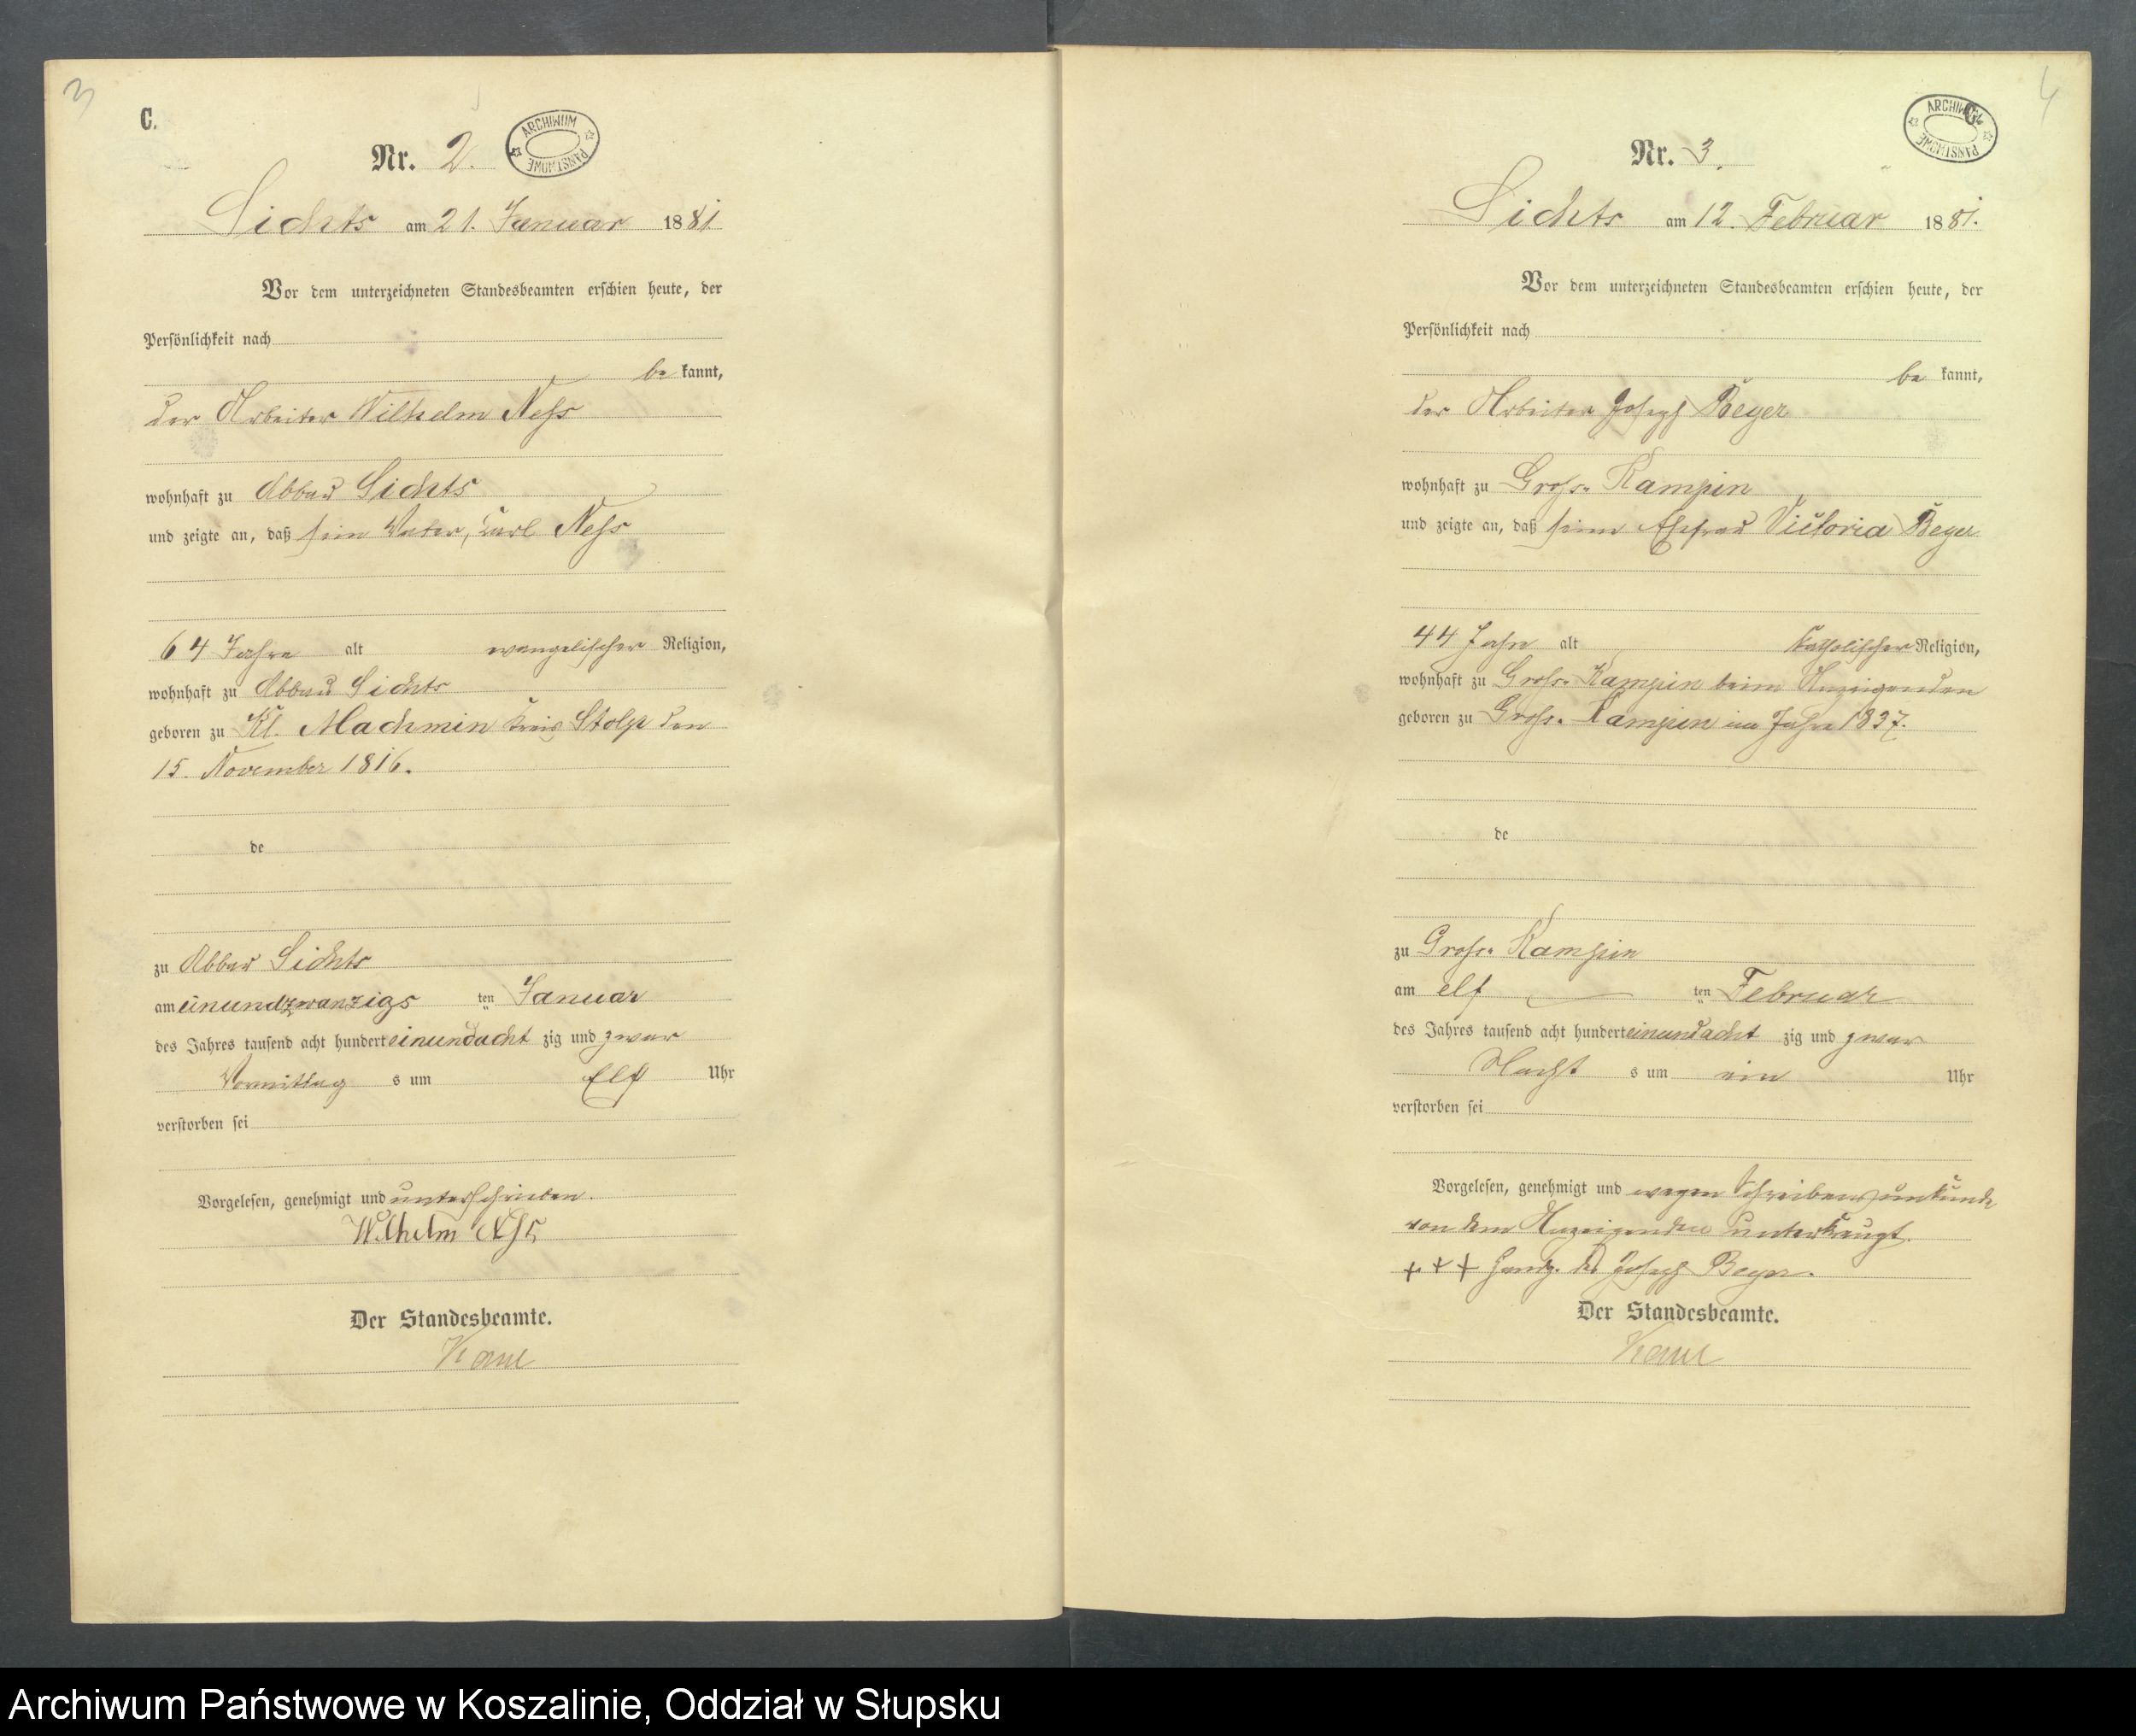 3
C.
Nr. 2.
ARCHIWUM PAŃSTWOWE
Lichts am 21. Januar 1881
Vor dem unterzeichneten Standesbeamten erschien heute, der
Persönlichkeit nach
be kannt,
der Arbeiter Wilhelm Neß
wohnhaft zu Abbau Lichts
und zeigte an, daß sein Vater, Carl Neß
64 Jahre alt evangelischer Religion,
wohnhaft zu Abbau Lichts
geboren zu Kl. Machmin Kreis Stolp den
15. November 1816.
de
zu Abbau Lichts
am einundzwanzigs ten Januar
des Jahres tausend acht hundert einundacht zig und zwar
Vormittag s um elf Uhr
verstorben sei
Vorgelesen, genehmigt und unterschrieben.
Wilhelm Neß
Der Standesbeamte.
4
C.
Nr. 3.
ARCHIWUM PAŃSTWOWE
Lichts am 12. Februar 1881.
Vor dem unterzeichneten Standesbeamten erschien heute, der
Persönlichkeit nach
be kannt,
der Arbeiter Joseph Beyer
wohnhaft zu Groß- Kampin
und zeigte an, daß seine Ehefrau Victoria Beyer
44 Jahre alt katholischer Religion,
wohnhaft zu Groß- Kampin beim Anzeigenden
geboren zu Groß- Kampin im Jahre 1837.
de
zu Groß- Kampin
am elf ten Februar
des Jahres tausend acht hundert einundacht zig und zwar
Nacht s um ein Uhr
verstorben sei
Vorgelesen, genehmigt und wegen Schreibensunkunde
von dem Anzeigenden unterkreuzt.
+++ Handz. des Joseph Beyer.
Der Standesbeamte.
Archiwum Państwowe w Koszalinie, Oddział w Słupsku